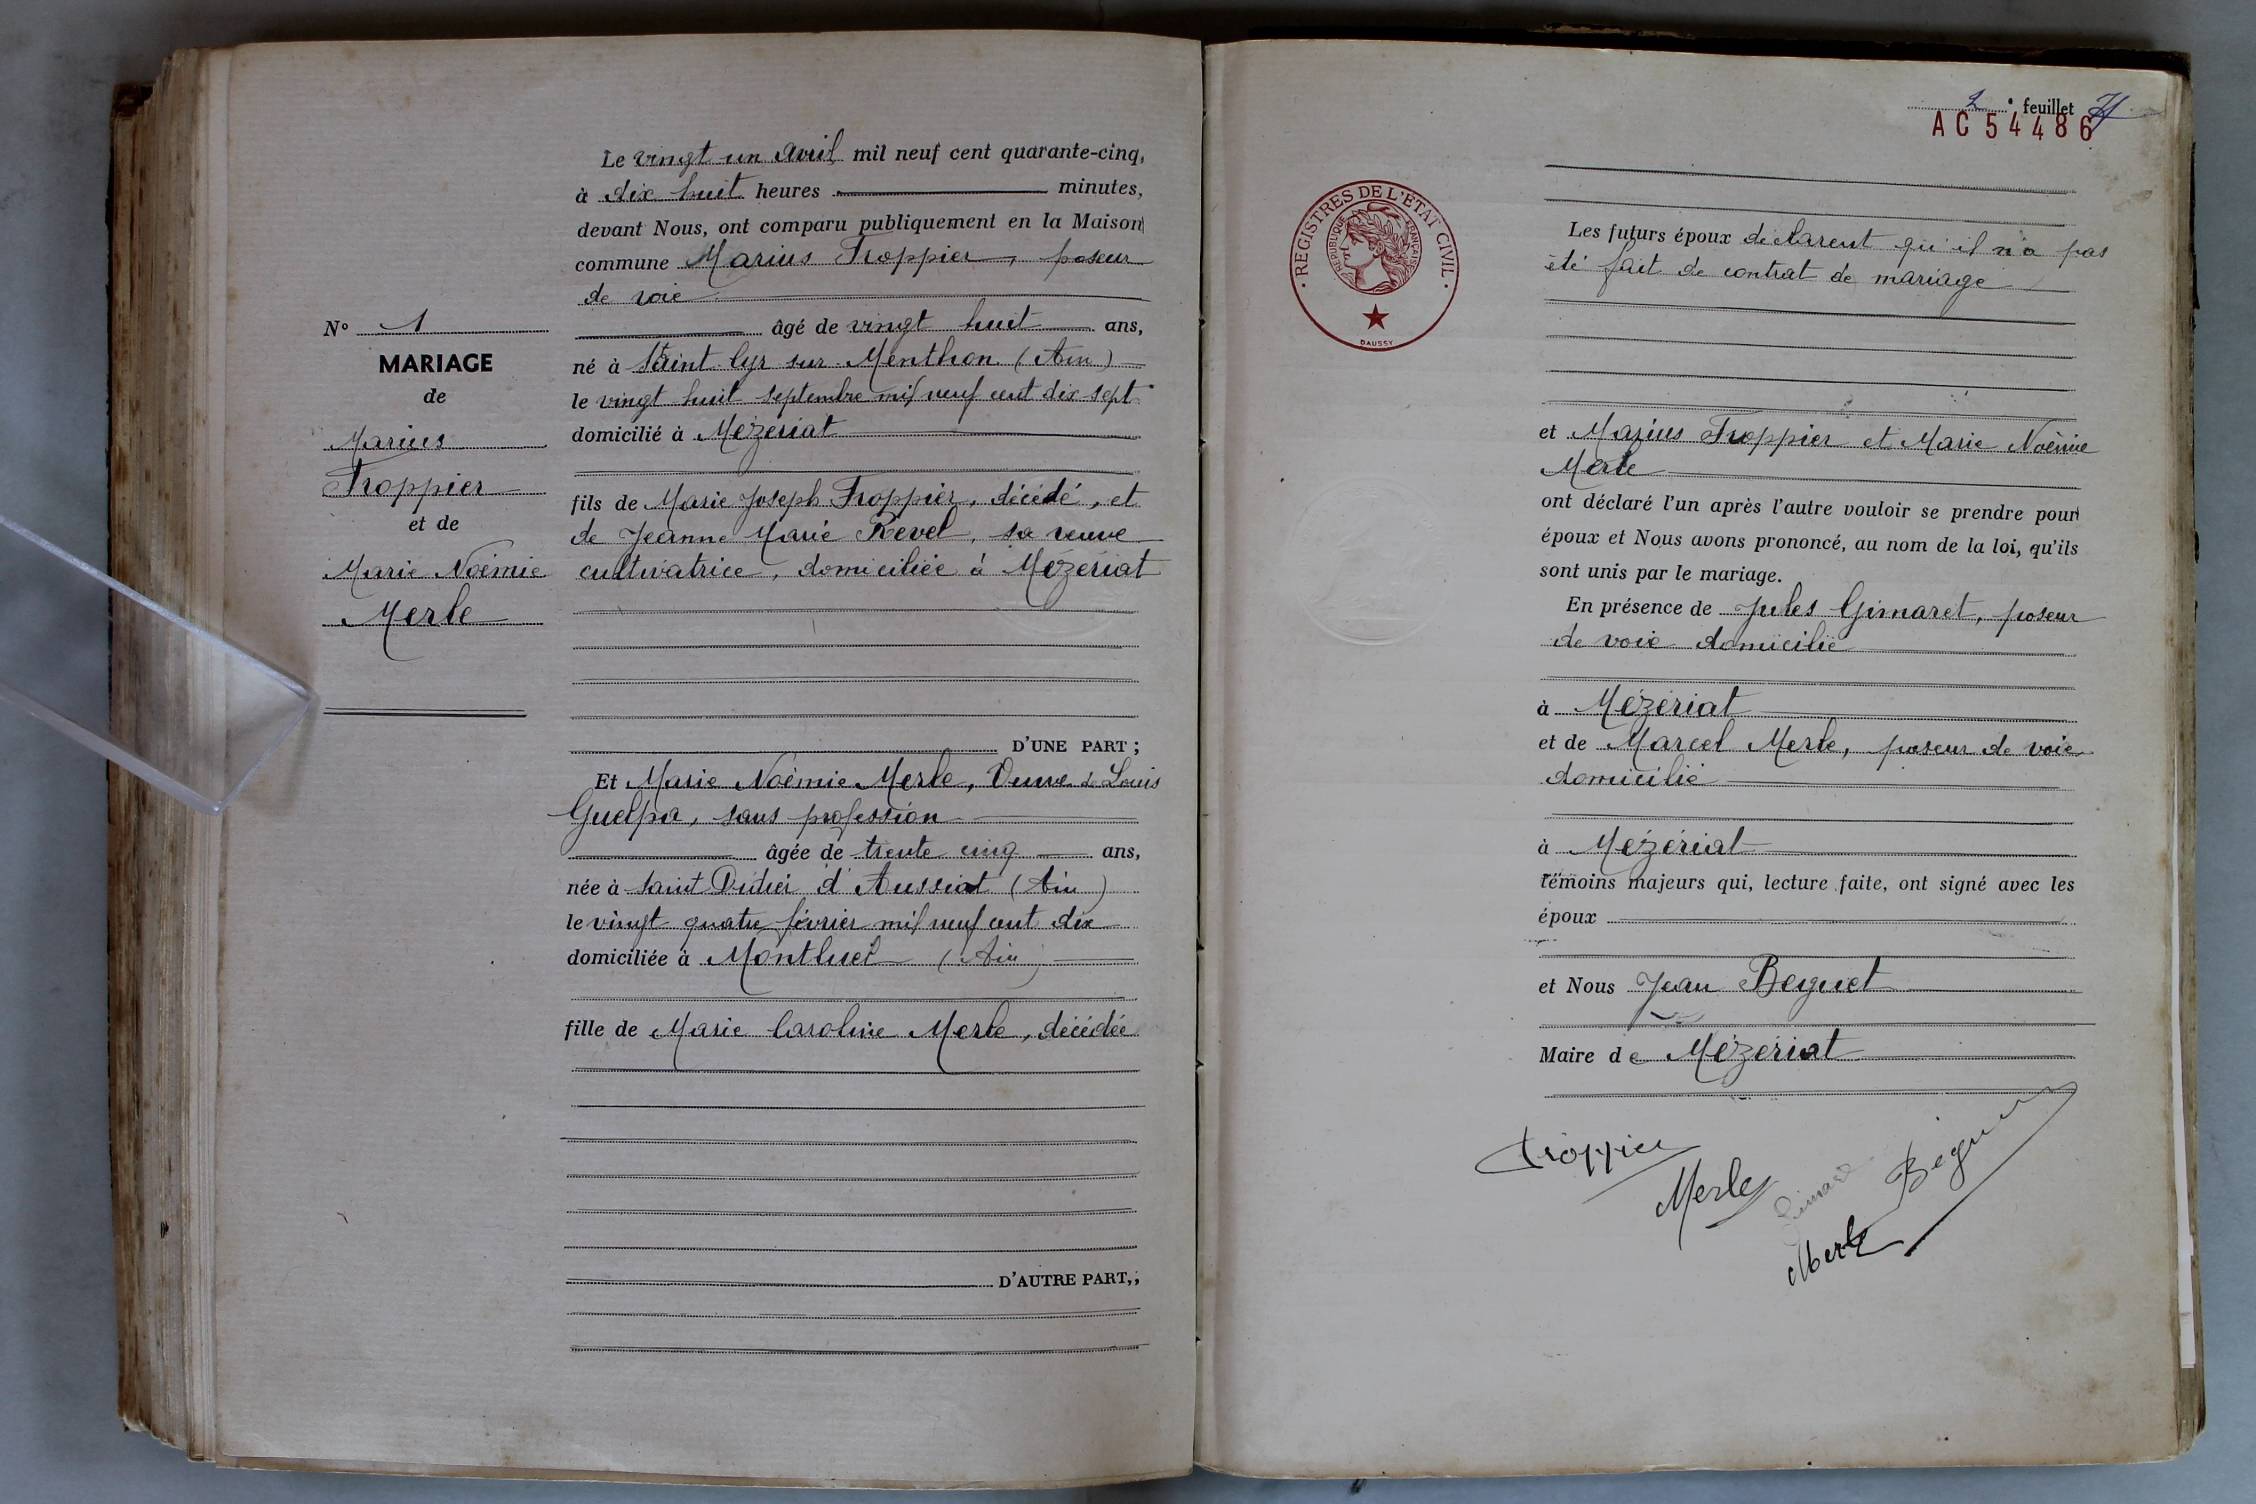 Le vingt un Avril mil neuf cent quarante-cinq,
à dix huit heures minutes,
devant Nous, ont comparu publiquement en la Maison
commune Marius Troppier, poseur
de voie
âgé de vingt huit ans,
né à Saint Cyr sur Menthon (Ain)
le vingt huit septembre mil neuf cent dix sept
domicilié à Mézériat
fils de Marie Joseph Troppier, décédé, et
de Jeanne Marie Revel, sa veuve
cultivatrice, domiciliée à Mézériat
D'UNE PART ;
Et Marie Noémie Merle, Veuve de Louis
Guelpa, sans profession
âgée de trente cinq ans,
née à Saint Didier d'Aussiat (Ain)
le vingt quatre février mil neuf cent dix
domiciliée à Montluel (Ain)
fille de Marie Caroline Merle, décédée
D'AUTRE PART,;
N° 1
MARIAGE
de
Marius
Troppier
et de
Marie Noémie
Merle
2e feuillet
AC 54486
REGISTRES DE L'ETAT CIVIL
REPUBLIQUE FRANÇAISE
DAUSSY
Les futurs époux déclarent qu'il n'a pas
été fait de contrat de mariage
et Marius Troppier et Marie Noémie
Merle
ont déclaré l'un après l'autre vouloir se prendre pour
époux et Nous avons prononcé, au nom de la loi, qu'ils
sont unis par le mariage.
En présence de Jules Gimaret, poseur
de voie domicilié
à Mézériat
et de Marcel Merle, poseur de voie
domicilié
à Mézériat
témoins majeurs qui, lecture faite, ont signé avec les
époux
et Nous Jean Beguet
Maire de Mézériat
Troppier
Merle
Merle